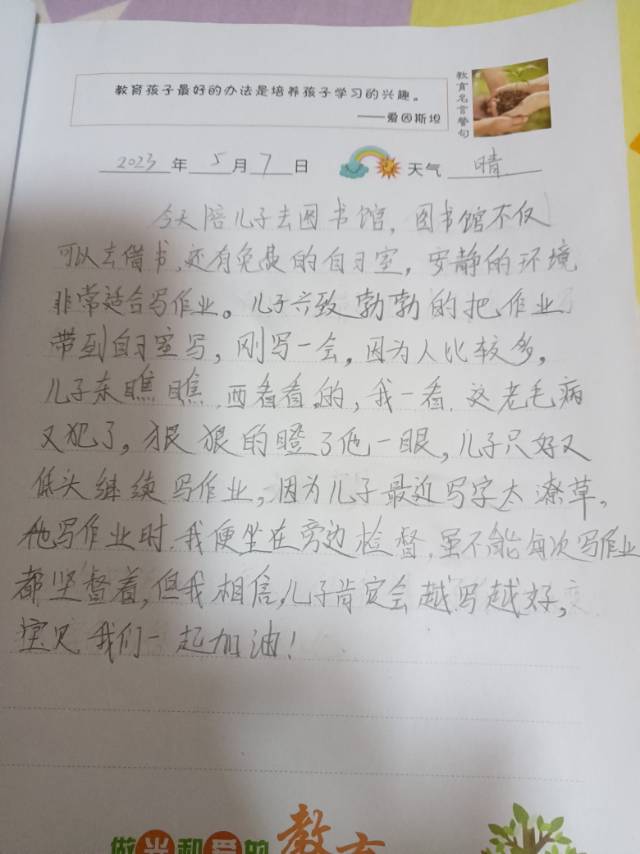 教育孩子最好的办法是培养孩子学习的兴趣。
——爱因斯坦
教育名言警句
2023年5月7日 天气 晴
今天陪儿子去图书馆，图书馆不仅
可以去借书，还有免费的自习室，安静的环境
非常适合写作业。儿子兴致勃勃的把作业
带到自习室写，刚写一会，因为人比较多，
儿子东瞧瞧，西看看的，我一看，这老毛病
又犯了，狠狠的瞪了他一眼，儿子只好又
低头继续写作业，因为儿子最近写字太潦草，
他写作业时，我便坐在旁边检督，虽不能每次写作业
都坚督着，但我相信，儿子肯定会越写越好，
宝贝我们一起加油！
做光和爱的教育